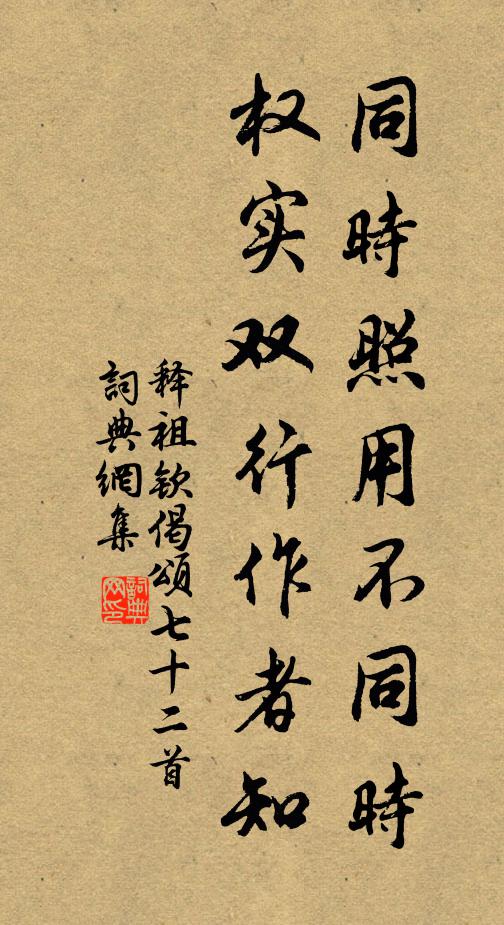 同時照用不同時
权实双行作者知
释祖钦偈頌七十二首
詞典網集
詞典网印